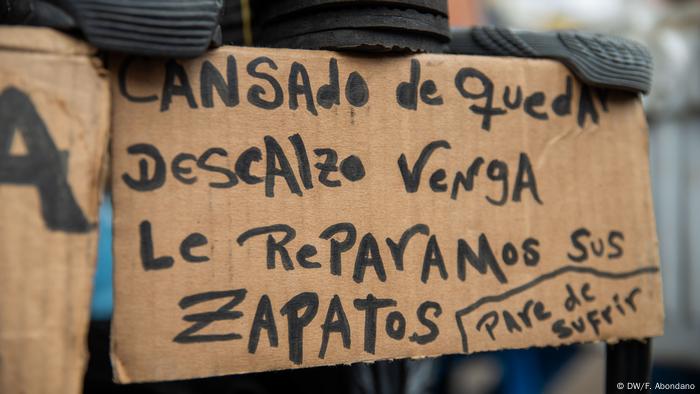 A
CANSADO de QuedAr
DESCALZO VENGA
Le RePARAMOS SuS
ZAPATOS
PARe de
SuFrir
© DW/F. Abondano